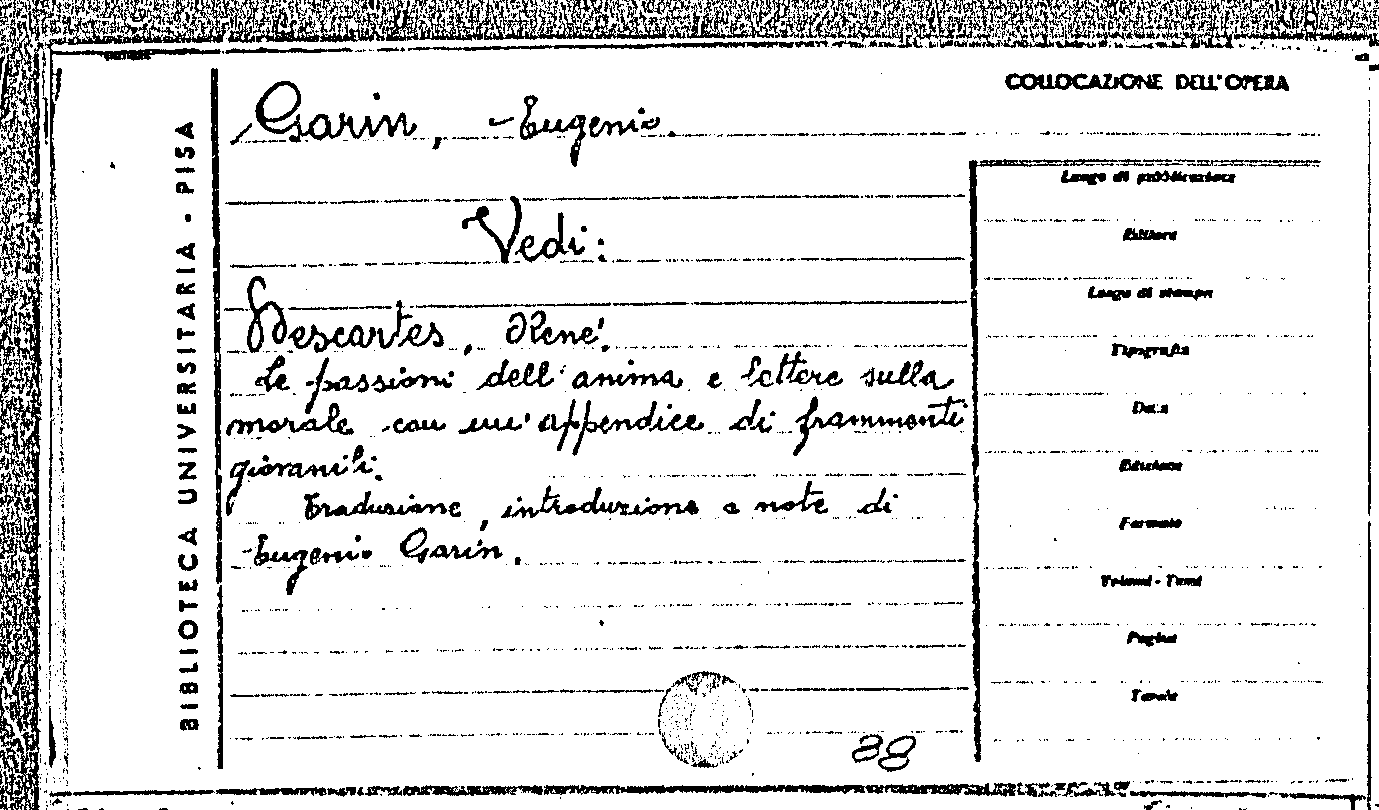 COLLOCAZIONE DELL'OPERA
BIBLIOTECA UNIVERSITARIA - PISA
Garin, Eugenio.
Vedi:
Descartes, René.
Le passioni dell'anima e lettere sulla
morale con un'appendice di frammenti
giovanili.
Traduzione, introduzione e note di
Eugenio Garin.
88
Luogo di pubblicazione
Editore
Luogo di stampa
Tipografia
Data
Edizione
Formato
Volumi - Tomi
Pagine
Tavole